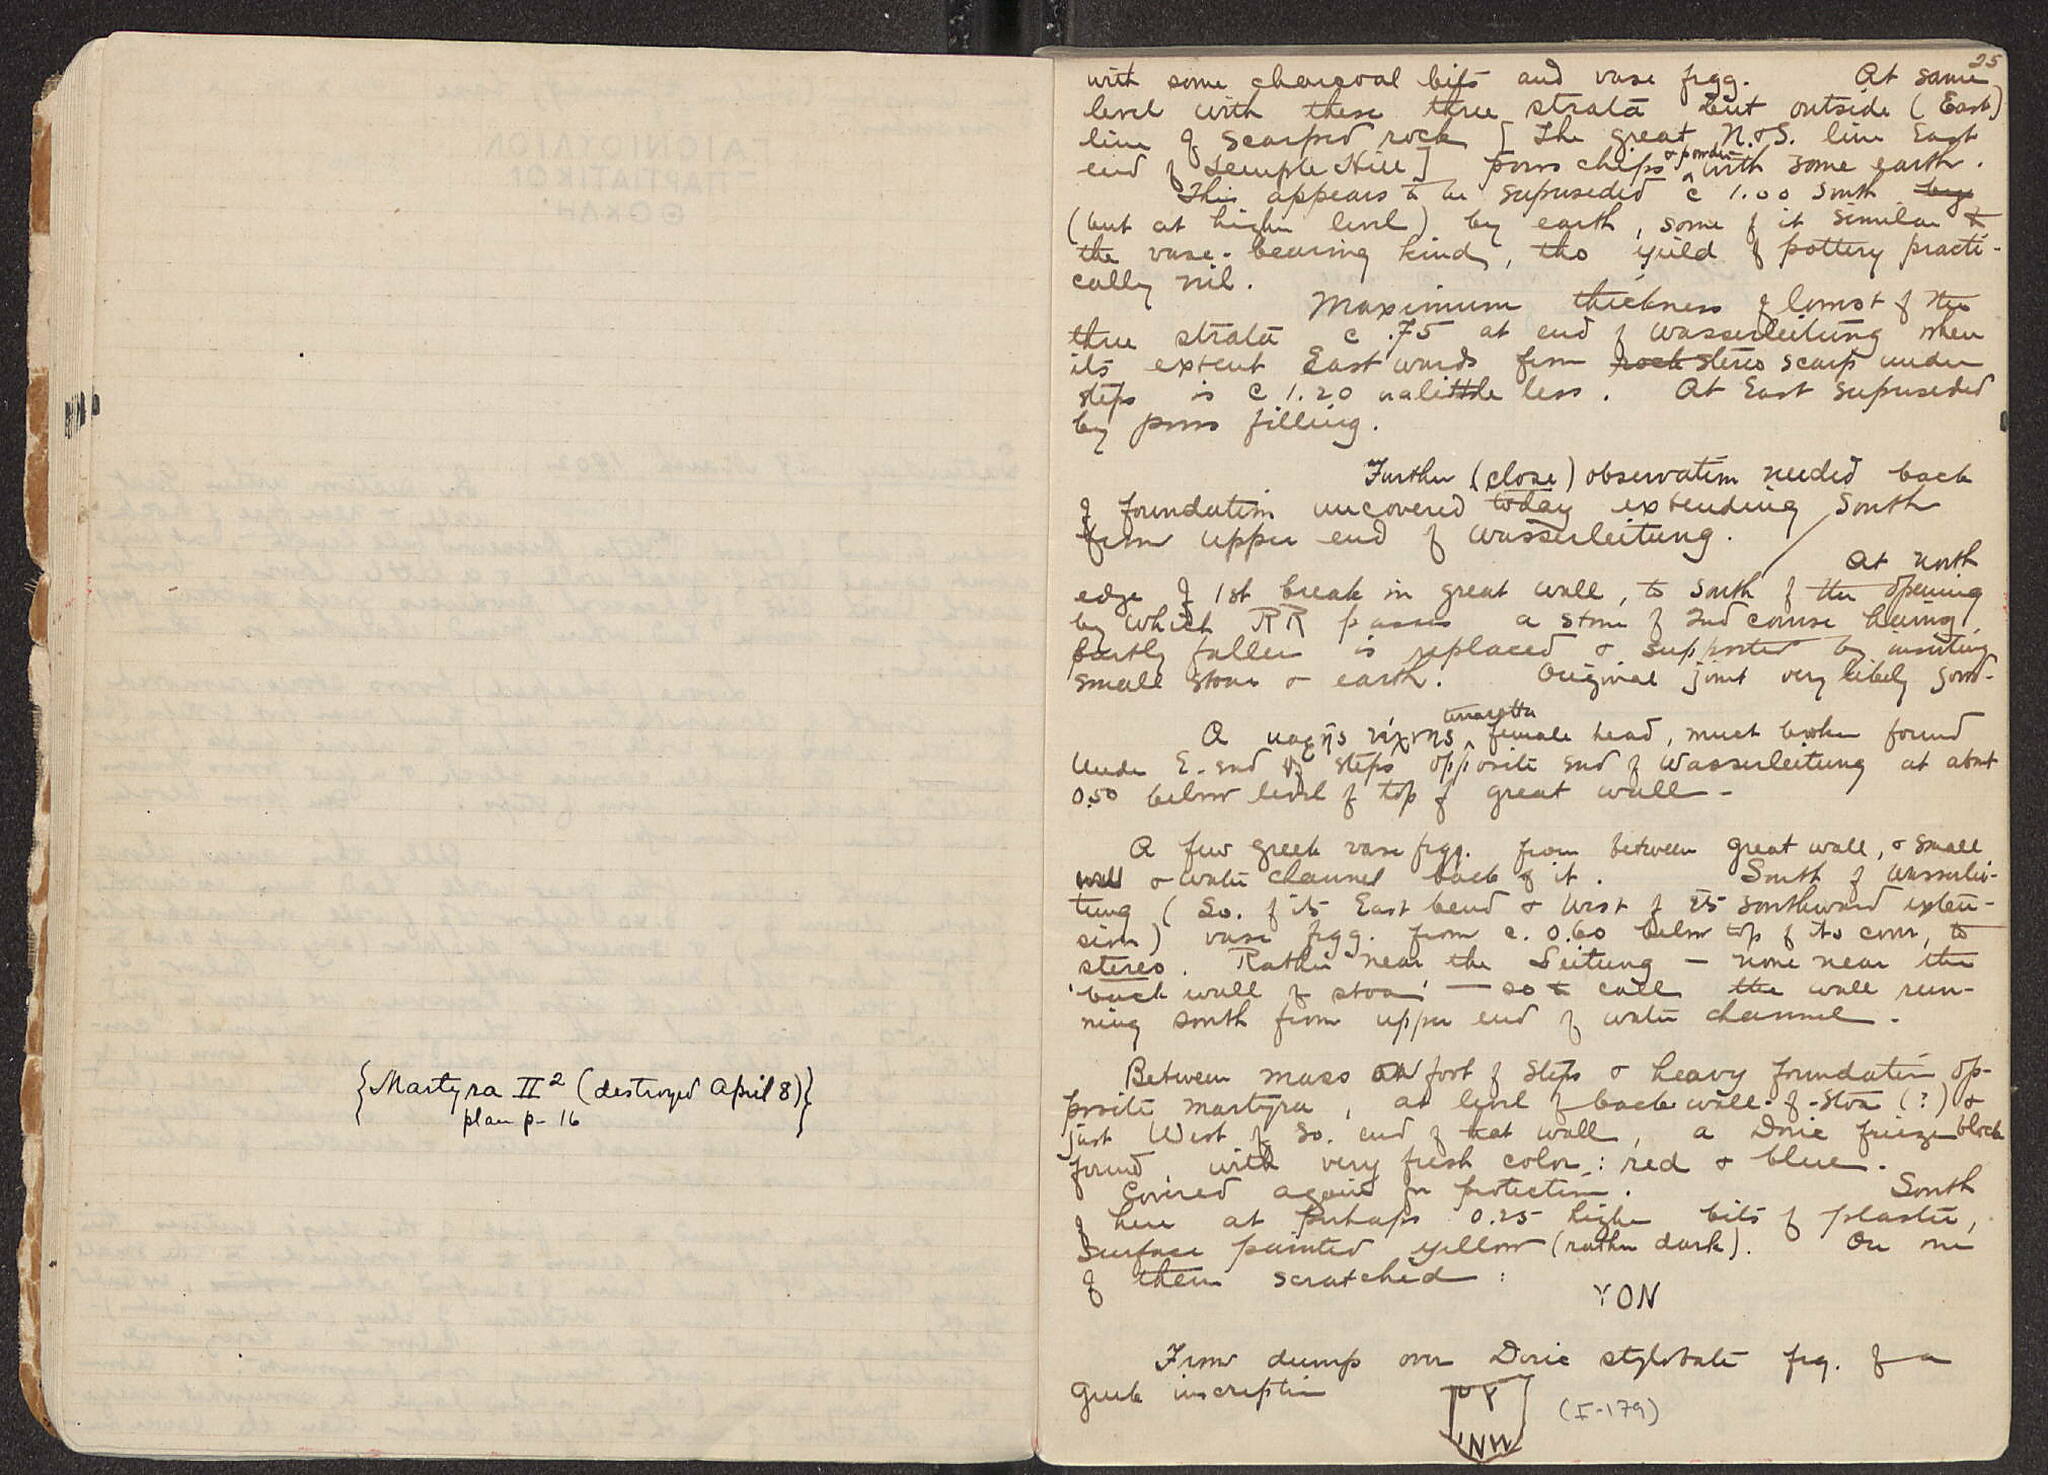 {Martyra II² (destroyed April 8)}
plan p-16
25
with some charcoal bits and vase frgg. At same
level with these three strata but outside (East)
line of scarped rock [The great N.&S. line East
end of Temple Hill] poros chips & powder with some earth.
This appears to be superseded c 1.00 South by
(but at higher level) by earth, some of it similar to
the vase-bearing kind, tho yield of pottery practi-
cally nil.
Maximum thickness of lowest of the
three strata c .75 at end of Wasserleitung when
its extent Eastwards from rock stereo scarp under
steps is c 1.20 or a little less. At East superseded
by poros filling.
Further (close) observation needed back
of foundation uncovered today extending South
from upper end of Wasserleitung.
At north
edge of 1st break in great wall, to south of the opening
by which RR passes a stone of 2nd course having
partly fallen is replaced & supported by inserting
small stones & earth. Original joint very likely good-
A terracotta female head, much broken found
Under E. end of steps opposite end of Wasserleitung at about
0.50 below level of top of great wall-
A few greek vase frgg. from between great wall, & small
wall & water channel back of it. South of Wasserlei-
tung (So. of its East bend & West of its southward exten-
sion) vase frgg. from c. 0.60 below top of its cover, to
stereo. Rather near the Leitung - none near the
'back wall of stoa' - so to call the wall run-
ning south from upper end of water channel.
Between mass at foot of steps & heavy foundation op-
posite martyra, at level of back wall of stoa (?) &
just West of So. end of that wall, a Doric frieze block
found with very fresh color: red & blue.
Covered again for protection. South
of here at perhaps 0.25 higher bits of plaster,
surface painted yellow (rather dark). On one
of them scratched:
YON
From dump over Doric stylobate frg. of a
Greek inscription
(I-179)